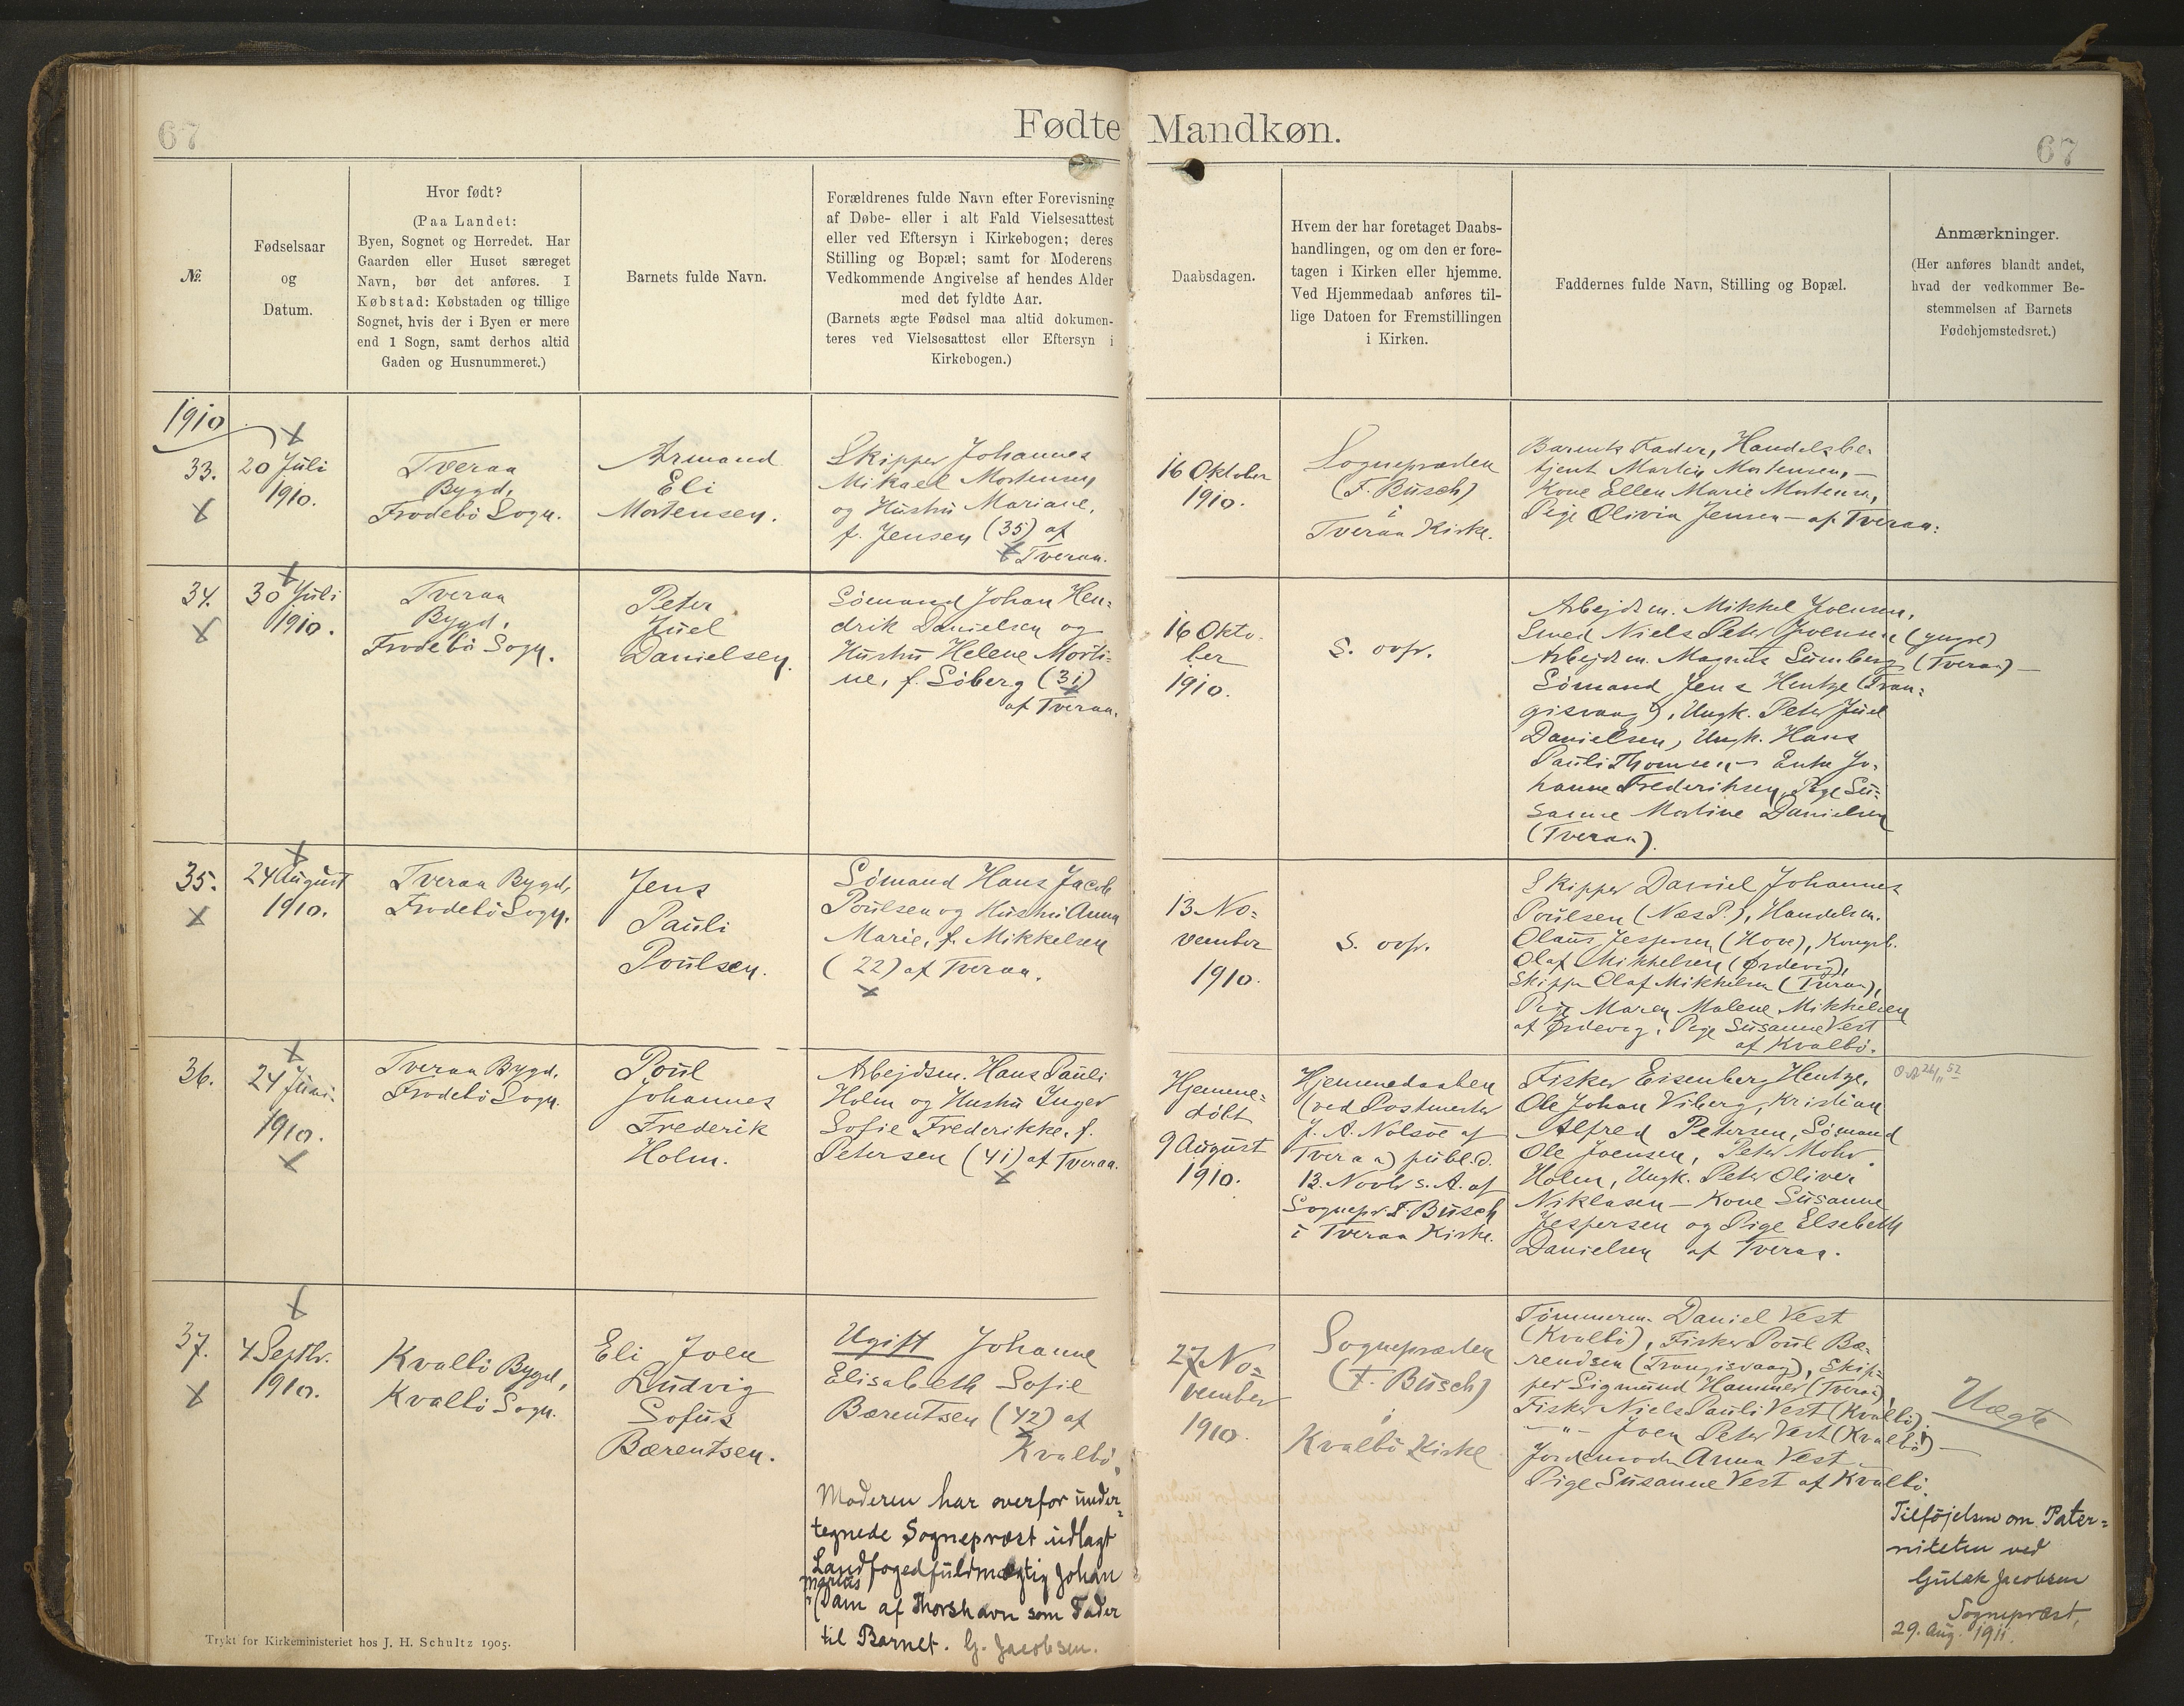 67
Fødte Mandkøn.
67
№.
Fødselsaar
og
Datum.
Hvor født?
(Paa Landet:
Byen, Sognet og Herredet. Har
Gaarden eller Huset særeget
Navn, bør det anføres. I
Købstad: Købstaden og tillige
Sognet, hvis der i Byen er mere
end 1 Sogn, samt derhos altid
Gaden og Husnummeret.)
Barnets fulde Navn.
Forældrenes fulde Navn efter Forevisning
af Døbe- eller i alt Fald Vielsesattest
eller ved Eftersyn i Kirkebogen; deres
Stilling og Bopæl; samt for Moderens
Vedkommende Angivelse af hendes Alder
med det fyldte Aar.
(Barnets ægte Fødsel maa altid dokumen-
teres ved Vielsesattest eller Eftersyn i
Kirkebogen.)
Daabsdagen.
Hvem der har foretaget Daabs-
handlingen, og om den er fore-
tagen i Kirken eller hjemme.
Ved Hjemmedaab anføres til-
lige Datoen for Fremstillingen
i Kirken.
Faddernes fulde Navn, Stilling og Bopæl.
Anmærkninger.
(Her anføres blandt andet,
hvad der vedkommer Be-
stemmelsen af Barnets
Fødehjemstedsret.)
1910
33.
20 Juli
1910.
Tveraa
Bygd,
Frodebö Sogn.
Armand
Eli
Mortensen.
Skipper Johannes
Mikael Mortensen
og Hustru Mariane,
f. Jensen (35) af
Tveraa.
16 Oktober
1910.
Sognepræsten
(F. Busch)
i
Tveraa Kirke.
Barnets Fader, Handelsbe-
tjent Martin Mortensen, —
Kone Ellen Marie Mortensen,
Pige Olivia Jensen — af Tveraa.
34.
30 Juli
1910.
Tveraa
Bygd,
Frodebö Sogn.
Peter
Juel
Danielsen.
Sömand Johan Hen-
drik Danielsen og
Hustru Helene Morti-
ne, f. Söberg (31)
af Tveraa.
16 Okto-
ber
1910.
S. ovfr.
Arbejdsm. Mikkel Joensen,
Smed Niels Peter Joensen (yngre)
Arbejdsm. Magnus Sumberg (Tveraa) —
Sömand Jens Hentze (Tran-
gisvaag), Ungk. Peter Juel
Danielsen, Ungk. Hans
Pauli Thomsen — Enke Jo-
hanne Frederiksen, Pige Su-
sanne Mortine Danielsen
(Tveraa).
35.
24 August
1910.
Tveraa Bygd,
Frodebö Sogn.
Jens
Pauli
Poulsen.
Sömand Hans Jacob
Poulsen og Hustru Anna
Marie, f. Mikkelsen
(22) af Tveraa.
13 No-
vember
1910.
S. ovfr.
Skipper Daniel Johannes
Poulsen (Næs P.), Handelsm.
Olaus Jespersen (Hove), Kongsb.
Olaf Mikkelsen (Ördevig),
Skipper Olaf Mikkelsen (Tveraa),
Pige Maren Malene Mikkelsen
af Ördevig, Pige Susanne Vest
af Kvalbö.
36.
24 Juni
1910.
Tveraa Bygd,
Frodebö Sogn.
Poul
Johannes
Frederik
Holm.
Arbejdsm. Hans Pauli
Holm og Hustru Inger
Sofie Frederikke, f.
Petersen (41) af Tveraa.
Hjemme-
döbt
9 August
1910.
Hjemmedaaben
(ved Postmester
J. A. Nolsöe af
Tveraa) publ. d.
13. Novbr s. A. af
Sognepr. F. Busch
i Tveraa Kirke.
Fisker Eisenberg Hentze,
Ole Johan Viberg, Kristian
Alfred Petersen, Sömand
Ole Joensen, Peter Mohr
Holm, Ungk. Peter Oliver
Niklasen — Kone Susanne
Jespersen og Pige Elsebeth
Danielsen af Tveraa.
37.
4 Septbr.
1910.
Kvalbö Bygd,
Kvalbö Sogn.
Eli Joen
Ludvig
Sofus
Bærentsen.
Ugift Johanne
Elisabeth Sofie
Bærentsen (42) af
Kvalbö.
Moderen har overfor under-
tegnede Sognepræst udlagt
Landfogedfuldmægtig Johan
Marius
Dam af Thorshavn som Fader
til Barnet. G. Jacobsen.
27 No-
vember
1910.
Sognepræsten
(F. Busch)
i
Kvalbö Kirke
Tömmerm. Daniel Vest
(Kvalbö), Fisker Poul Bæ-
rendsen (Trangisvaag), Skip-
per Sigmund Hammer (Tveraa),
Fisker Niels Pauli Vest (Kvalbö),
— " — Joen Peter Vest (Kvalbö) —
Jordemoder Anna Vest
Pige Susanne Vest af Kvalbö.
Uægte
Tilföjelsen om Pater-
niteten ved
Gulak Jacobsen
Sognepræst,
29. Aug. 1911.
Trykt for Kirkeministeriet hos J. H. Schultz 1905.